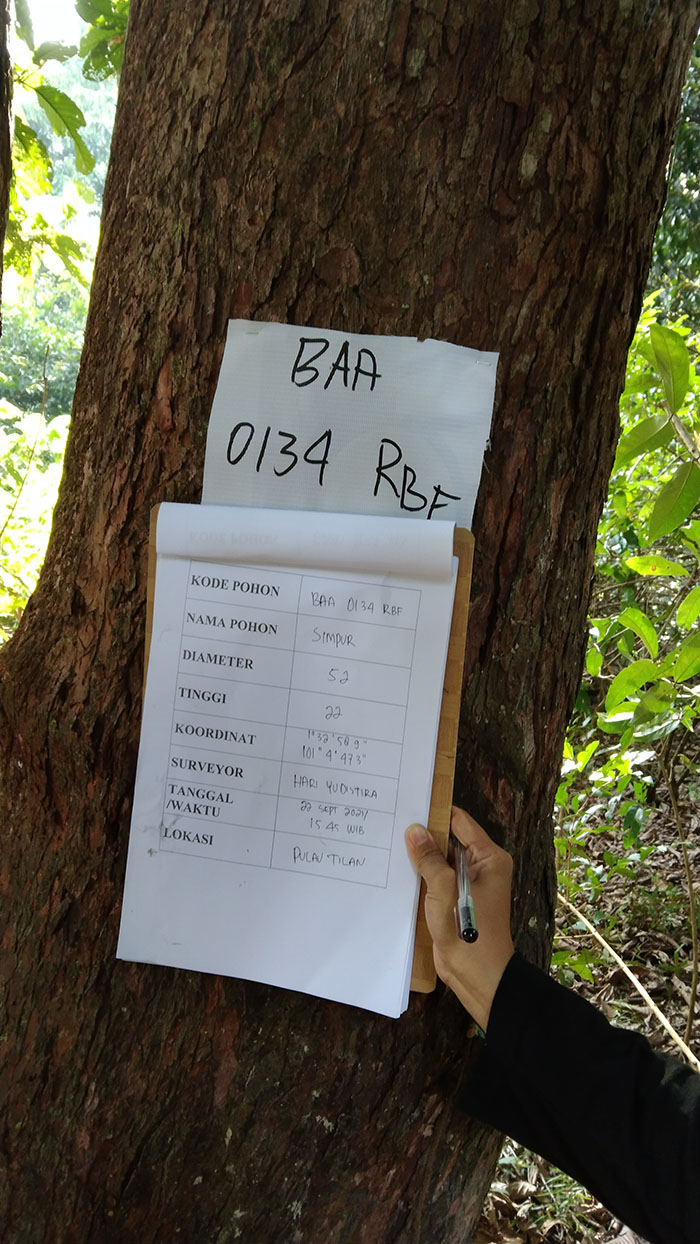 BAA
0134 RBF
KODE POHON BAA 0134 RBF
NAMA POHON SIMPUR
DIAMETER 52
TINGGI 22
KOORDINAT 1°32'50 9"
101°4'47 3"
SURVEYOR HARI YUDISTIRA
TANGGAL 22 SEPT 2024
/WAKTU 15 45 WIB
LOKASI PULAU TILAN